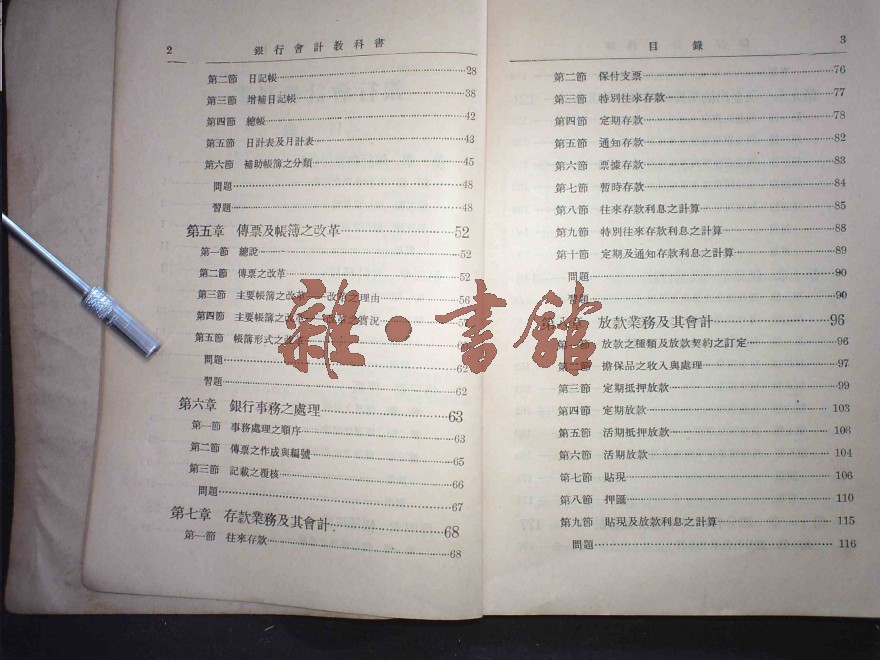 2 銀行會計教科書
第二節 日記帳 28
第三節 增補日記帳 38
第四節 總帳 42
第五節 日計表及月計表 43
第六節 補助帳簿之分類 45
問題 48
習題 48
第五章 傳票及帳簿之改革 52
第一節 總說 52
第二節 傳票之改革 52
第三節 主要帳簿之改革——改革之理由 56
第四節 主要帳簿之改革 實況
第五節 帳簿形式之改革
問題 62
習題 62
第六章 銀行事務之處理 63
第一節 事務處理之順序 63
第二節 傳票之作成與編號 65
第三節 記載之覆核 66
問題 67
第七章 存款業務及其會計 68
第一節 往來存款 68
目錄 3
第二節 保付支票 76
第三節 特別往來存款 77
第四節 定期存款 78
第五節 通知存款 82
第六節 票據存款 83
第七節 暫時存款 84
第八節 往來存款利息之計算 85
第九節 特別往來存款利息之計算 88
第十節 定期及通知存款利息之計算 89
問題 90
習題 90
第八章 放款業務及其會計 96
第一節 放款之種類及放款契約之訂定 96
第二節 擔保品之收入與處理 97
第三節 定期抵押放款 99
第四節 定期放款 103
第五節 活期抵押放款 103
第六節 活期放款 104
第七節 貼現 106
第八節 押匯 110
第九節 貼現及放款利息之計算 115
問題 116
雜·書館